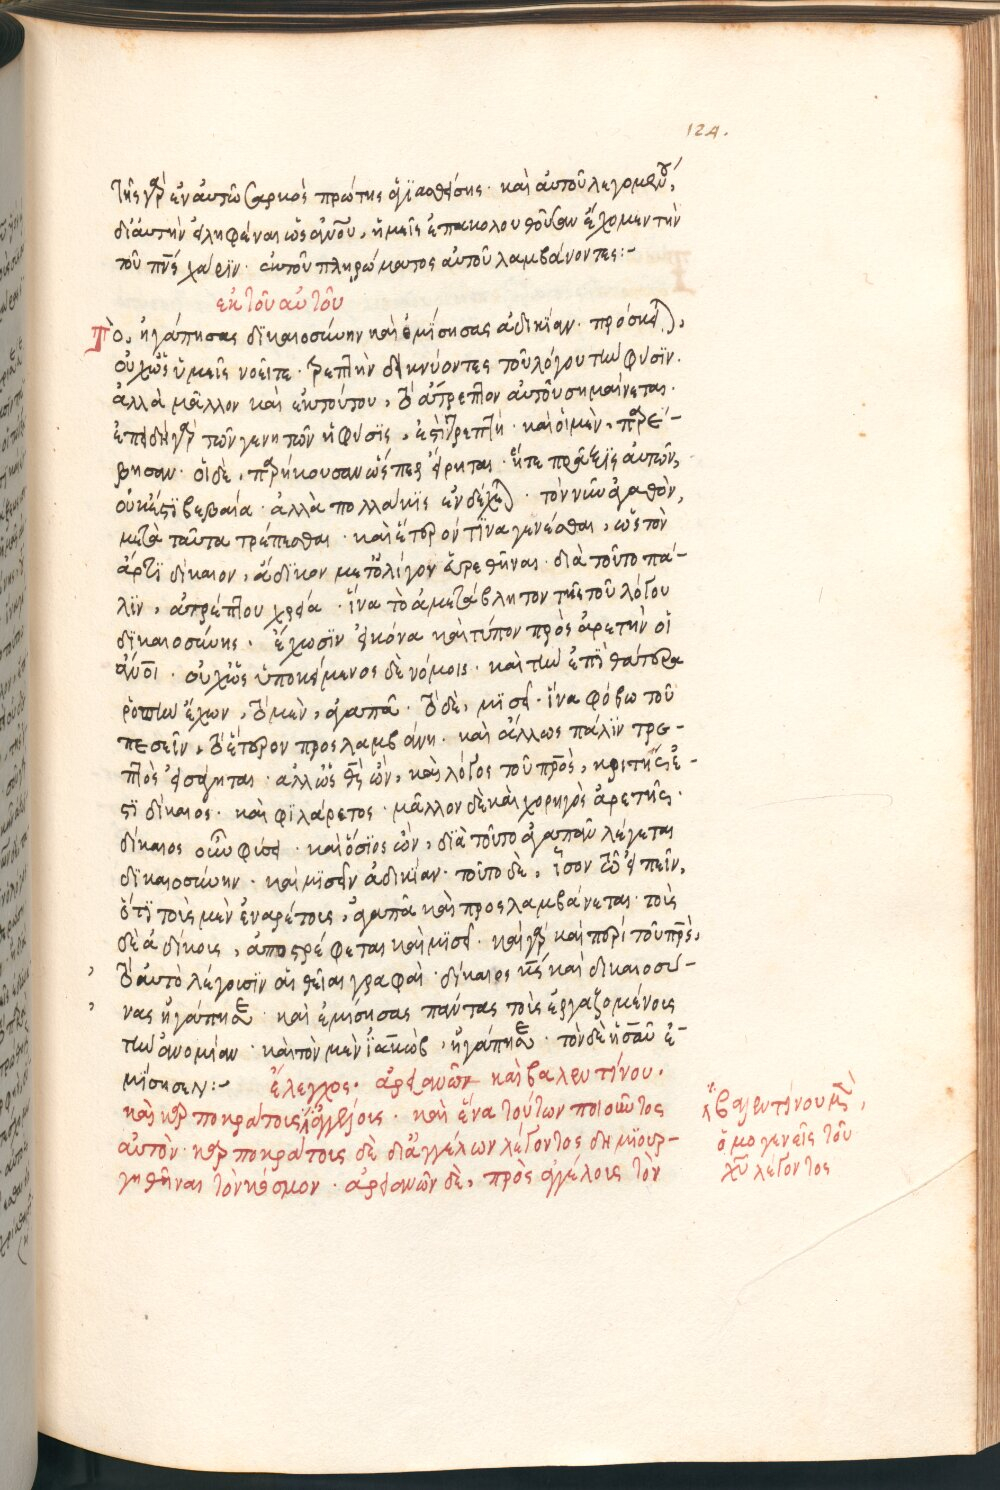 124.
τῆς γὰρ ἐν αὐτῷ σαρκὸς πρώτης ἁγιασθείσης· καὶ αὐτοῦ λεγομένου,
δι' αὐτὴν εἰληφέναι ὡς ἀνου, ἡμεῖς ἐπακολουθοῦσαν ἔχομεν τὴν
τοῦ πνς χάριν· ἐκ τοῦ πληρώματος αὐτοῦ λαμβάνοντες:-
ἐκ τοῦ αὐτοῦ
Τὸ, ἠγάπησας δικαιοσύνην καὶ ἐμίσησας ἀδικίαν· πρόσκειται,
οὐχ ὡς ὑμεῖς νοεῖτε· τρεπτὴν δεικνύοντες τοῦ λόγου τὴν φύσιν·
ἀλλὰ μᾶλλον καὶ ἐκ τούτου, τὸ ἄτρεπτον αὐτοῦ σημαίνεται·
ἐπειδὴ γὰρ τῶν γενητῶν ἡ φύσις, ἐστὶ τρεπτή· καὶ οἱ μὲν, παρέ-
βησαν· οἱ δὲ, παρήκουσαν ὥσπερ εἴρηται· ἥ τε πρᾶξις αὐτῶν,
οὐκ ἔστι βεβαία· ἀλλὰ πολλάκις ἐνδέχεται· τὸν νῦν ἀγαθὸν,
μετὰ ταῦτα τρέπεσθαι· καὶ ἕτερόν τινα γενέσθαι, ὡς τὸν
ἄρτι δίκαιον, ἄδικον μετ' ὀλίγον εὑρεθῆναι· διὰ τοῦτο πά-
λιν, ἀτρέπτου χρεία· ἵνα τὸ ἀμετάβλητον τῆς τοῦ λόγου
δικαιοσύνης· ἔχωσιν εἰκόνα καὶ τύπον πρὸς ἀρετὴν οἱ
ἀνοι· οὐχ ὡς ὑποκείμενος δὲ νόμοις· καὶ τὴν ἐπὶ θάτερα
ῥοπὴν ἔχων, τὸ μὲν, ἀγαπᾶ· τὸ δὲ, μισεῖ· ἵνα φόβω τοῦ
πεσεῖν, τὸ ἕτερον προσλαμβάνη· καὶ ἄλλως πάλιν τρε-
πτὸς εἰσάγηται· ἀλλ' ὡς θς ὢν, καὶ λόγος τοῦ πρς, κριτής ἐ-
στι δίκαιος· καὶ φιλάρετος· μᾶλλον δὲ καὶ χορηγὸς ἀρετῆς·
δίκαιος οὖν φύσει· καὶ ὅσιος ὢν, διὰ τοῦτο ἀγαπᾶν λέγεται
δικαιοσύνην· καὶ μισεῖν ἀδικίαν· τοῦτο δὲ, ἶσον τῶ εἰπεῖν,
ὅτι τοὺς μὲν ἐναρέτους, ἀγαπᾶ καὶ προσλαμβάνεται· τοὺς
δὲ ἀδίκους, ἀποστρέφεται καὶ μισεῖ· καὶ γὰρ καὶ περὶ τοῦ πρς,
τὸ αὐτὸ λέγουσιν αἱ θεῖαι γραφαὶ· δίκαιος κς καὶ δικαιοσύ-
νας ἠγάπησε· καὶ ἐμίσησας πάντας τοὺς ἐργαζομένους
τὴν ἀνομίαν· καὶ τὸν μὲν ἰακὼβ, ἠγάπησε· τὸν δὲ ἠσαῦ ἐ-
μίσησεν:- ἔλεγχος· ἀρειανῶν καὶ βαλεντίνου·
καὶ καρποκράτους ἀγγέλοις· καὶ ἕνα τούτων ποιοῦντος
αὐτὸν· καρποκράτους δὲ δι' ἀγγέλων λέγοντος δημιουρ-
γηθῆναι τὸν κόσμον· ἀρειανῶν δὲ, πρὸς ἀγγέλους τὸν
βαλεντίνου μὲν,
ὁμογενεῖς τοῦ
χυ λέγοντος